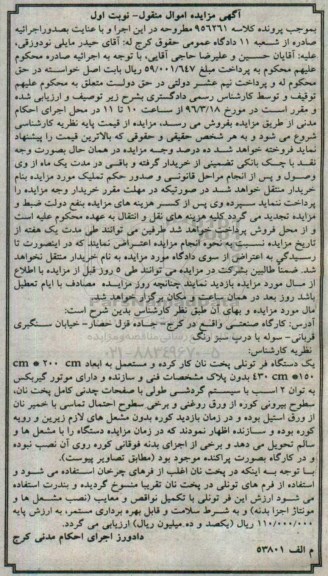 آگهی مزایده اموال منقول- نوبت اول
بموجب پرونده کلاسه ۹۵۲۲۶۱ مطروحه در این اجرا و با عنایت بصدوراجرائیه
صادره از شعبه ۱۱ دادگاه عمومی حقوق کرج له: آقای حیدر مایلی نودوزقی،
علیه: آقایان حسین و علیرضا حاجی آقایی، با توجه به اجرائیه صادره محکوم
علیهم محکوم به پرداخت مبلغ ۵۹/۰۰۱/۶۴۷ ریال بابت اصل خواسته در حق
محکوم له و پرداخت نیم عشر دولتی در حق دولت متعلق به محکوم علیهم
توقیف و توسط کارشناس رسمی دادگستری بشرح زیر توصیف و ارزیابی شده
و مقرر است در مورخ ۹۶/۳/۱۸ از ساعت ۱۰ تا ۱۱ در محل اجرای احکام
مدنی از طریق مزایده بفروش می رسد، مزایده از قیمت پایه نظریه کارشناسی
شروع می شود و به هر شخص حقیقی و حقوقی که بالاترین قیمت را پیشنهاد
نماید فروخته خواهد شد ده درصد وجه مزایده در همان حال بصورت وجه
نقد یا چک بانکی تضمینی از خریدار گرفته و باقی در مدت یک ماه از وی
وصول و پس از انجام مراحل قانونی و صدور حکم تملیک مورد مزایده بنام
خریدار منتقل خواهد شد در صورتیکه در مهلت مقرر خریدار وجه مزایده را
پرداخت ننماید سپرده وی پس از کسر هزینه های مزایده بنفع دولت ضبط و
مزایده تجدید می گردد کلیه هزینه های نقل و انتقال به عهده محکوم علیه است
و از محل فروش پرداخت خواهد شد طرفین می توانند طی مدت یک هفته از
تاریخ مزایده نسبت به نحوه انجام مزایده اعتراض نمایند که در اینصورت تا
رسیدگی به اعتراض از سوی دادگاه مورد مزایده به نام خریدار منتقل نخواهد
شد. ضمناً طالبین بشرکت در مزایده می توانند طی ۵ روز قبل از مزایده با اطلاع
از مـال مورد مزایده بازدید نمایند چنانچه روز مزایـده مصادف با ایام تعطیل
باشد روز بعد در همان ساعت و مکان برگزار خواهد شد
مال مورد مزایده و بهای آن طبق نظر کارشناس بدین شرح است:
آدرس: کارگاه صنعتی واقع در کرج- جاده قزل حصار- خیابان سنگبری
قربانی- سوله با درب سبز رنگ
نظریه کارشناس:
یک دستگاه فر تونلی پخت نان کار کرده و مستعمل به ابعاد cm * ۲۰۰ cm
۱۵۰* ۴۳۰ cm بدون پلاک مشخصات فنی و سازنده و دارای موتور گیربکس
به توان ۲ اسـب با سیستم گردشـی طولی با صفحات چدنی کامل پخت نان،
سطوح بیرونی کوره از ورق روغنی و برخی سطوح اتصال تماسی با خمیر نان
از ورق استیل بوده و در زمان بازدید کوره بدون مشعل های لازم زیرین و رویه
کوره بوده و سـازنده اظهار نمودند که در زمان مزایده دستگاه را با مشعل ها و
سالم تحویل می دهد و برخی از اجزای بدنه فوقانی کوره روی آن نصب نبوده
و در کارگاه بصورت پراکنده موجود بود (مطابق تصاویر پیوست).
بـا توجه بـه اینکه در پخت نان اغلب از فرهای چرخان استفاده می شـود و
استفاده از فرم های تونلی در پخت نان تقریبا منسوخ گردیده و بندرت استفاده
می شود ارزش این فر تونلی با تکمیل نواقص و معایب (نصب مشعل ها و
مونتاژ اجزا بدنه) و به شـرط سلامت و قابل بهره برداری مستمر، به ارزش پایه
۱۱۰/۰۰۰/۰۰۰ ریال (یکصد و ده.میلیون ریال) ارزیابی می گردد.
دادورز اجرای احکام مدنی کرج
م الف ۵۳۸۰۱
۰۲۱-۸۸۳۴۹۶۷۰-۵